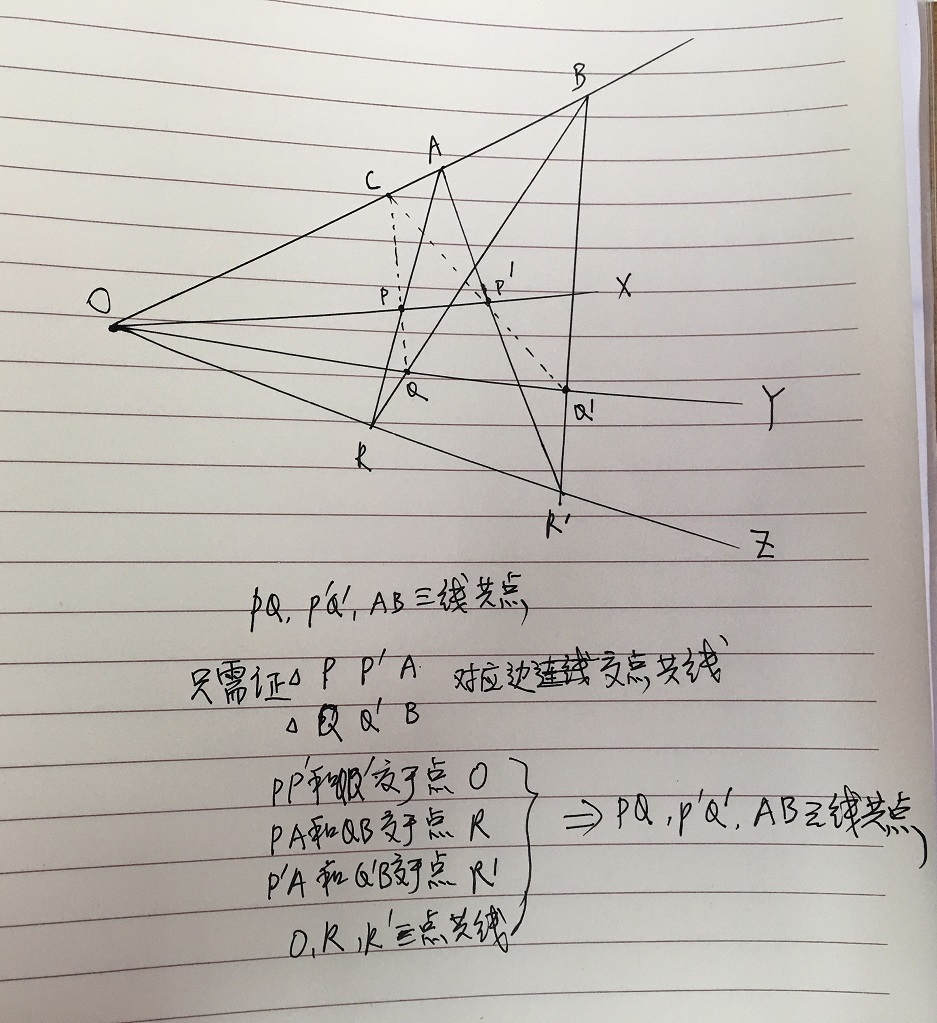 B
A
C
O
P
P'
X
Q
Q'
Y
R
R'
Z
PQ, P'Q', AB三线共点
只需证△ P P' A 对应边连线交点共线
△ Q Q' B
PP'和QQ'交于点 O
PA和QB交于点 R
⇒ PQ, P'Q', AB三线共点
P'A和Q'B交于点 R'
O, R, R'三点共线